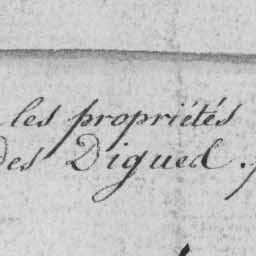 les propriétés
des Digues.